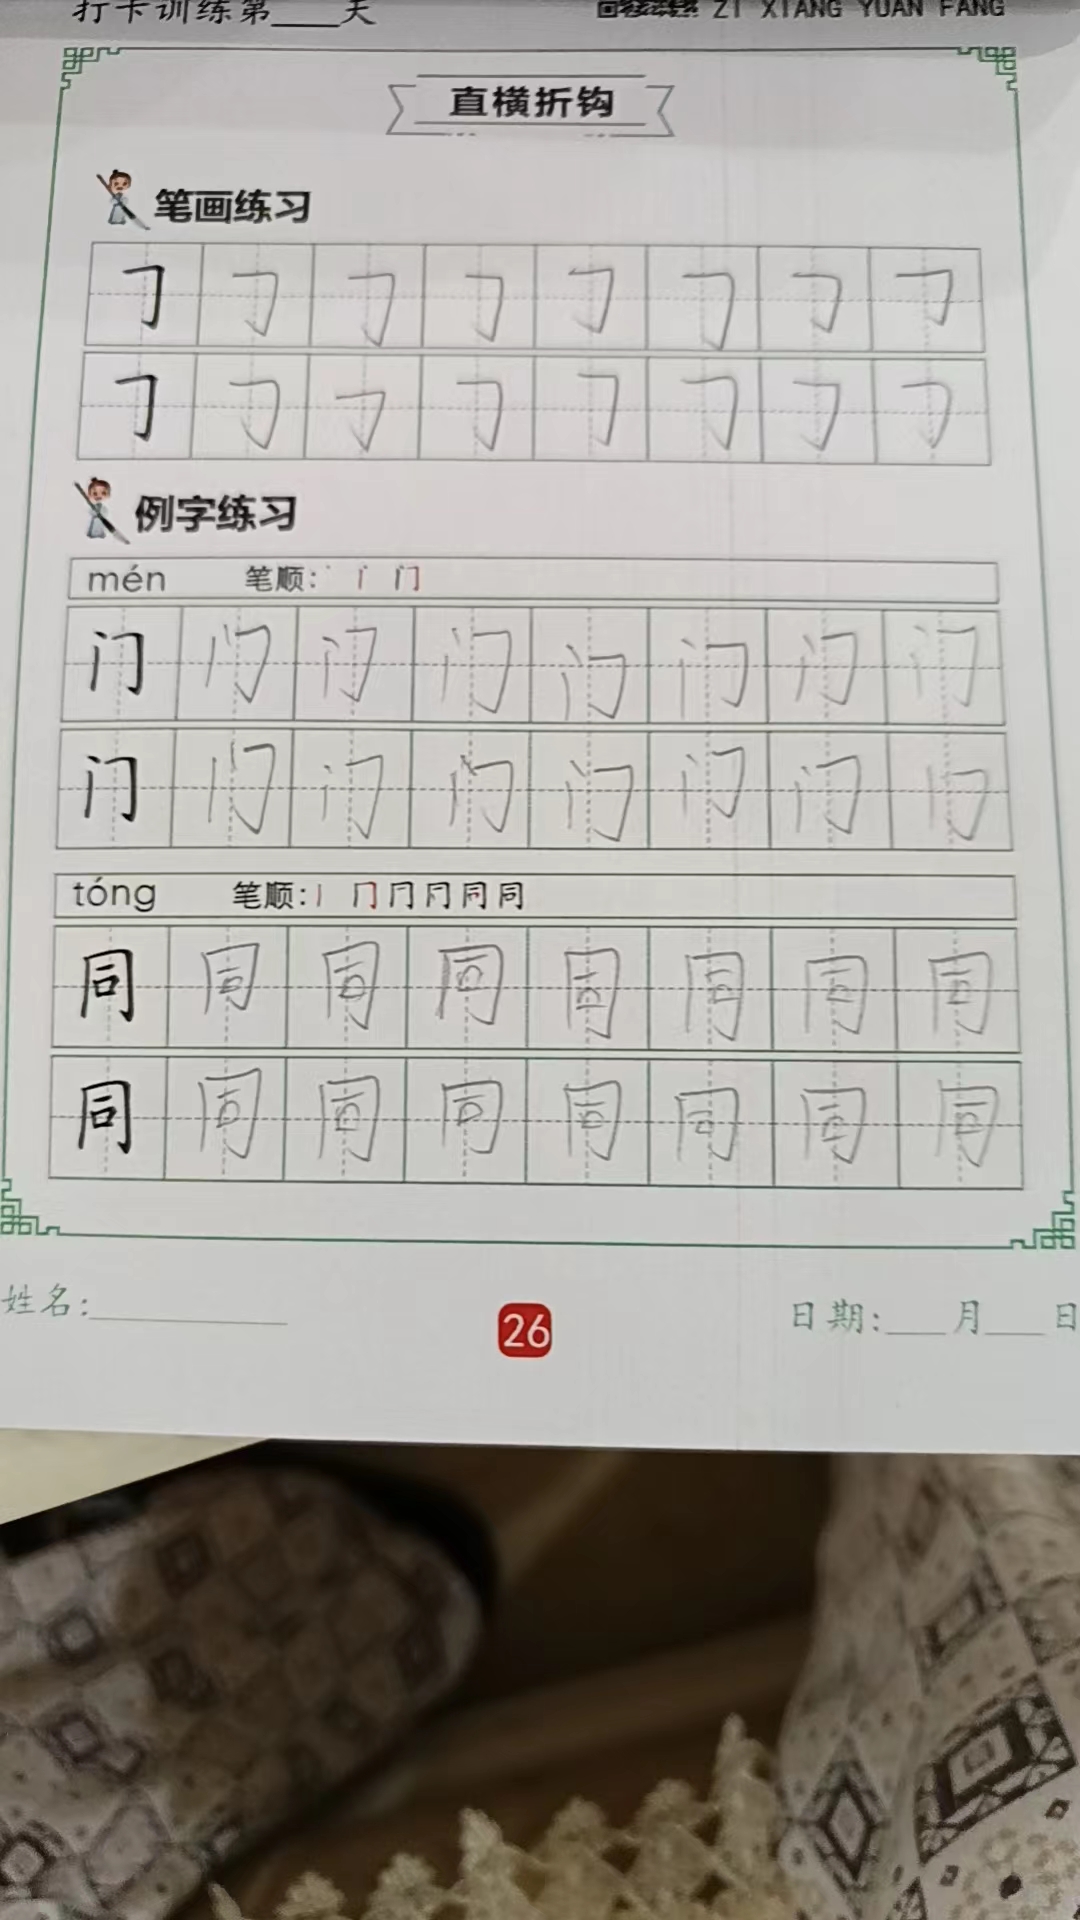 打卡训练第____天 ZI XIANG YUAN FANG
直横折钩
笔画练习
例字练习
mén 笔顺: 丶 丨 门
门 门 门 门 门 门 门 门
门 门 门 门 门 门 门 门
tóng 笔顺: 丨 冂 同
同 同 同 同 同 同 同 同
同 同 同 同 同 同 同 同
姓名:____________ 26 日期:____月____日